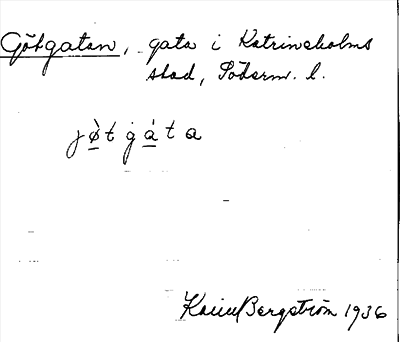 Götgatan, gata i Katrineholms
stad, Söderm. l.
jø̀t gáta
Karin Bergström 1936